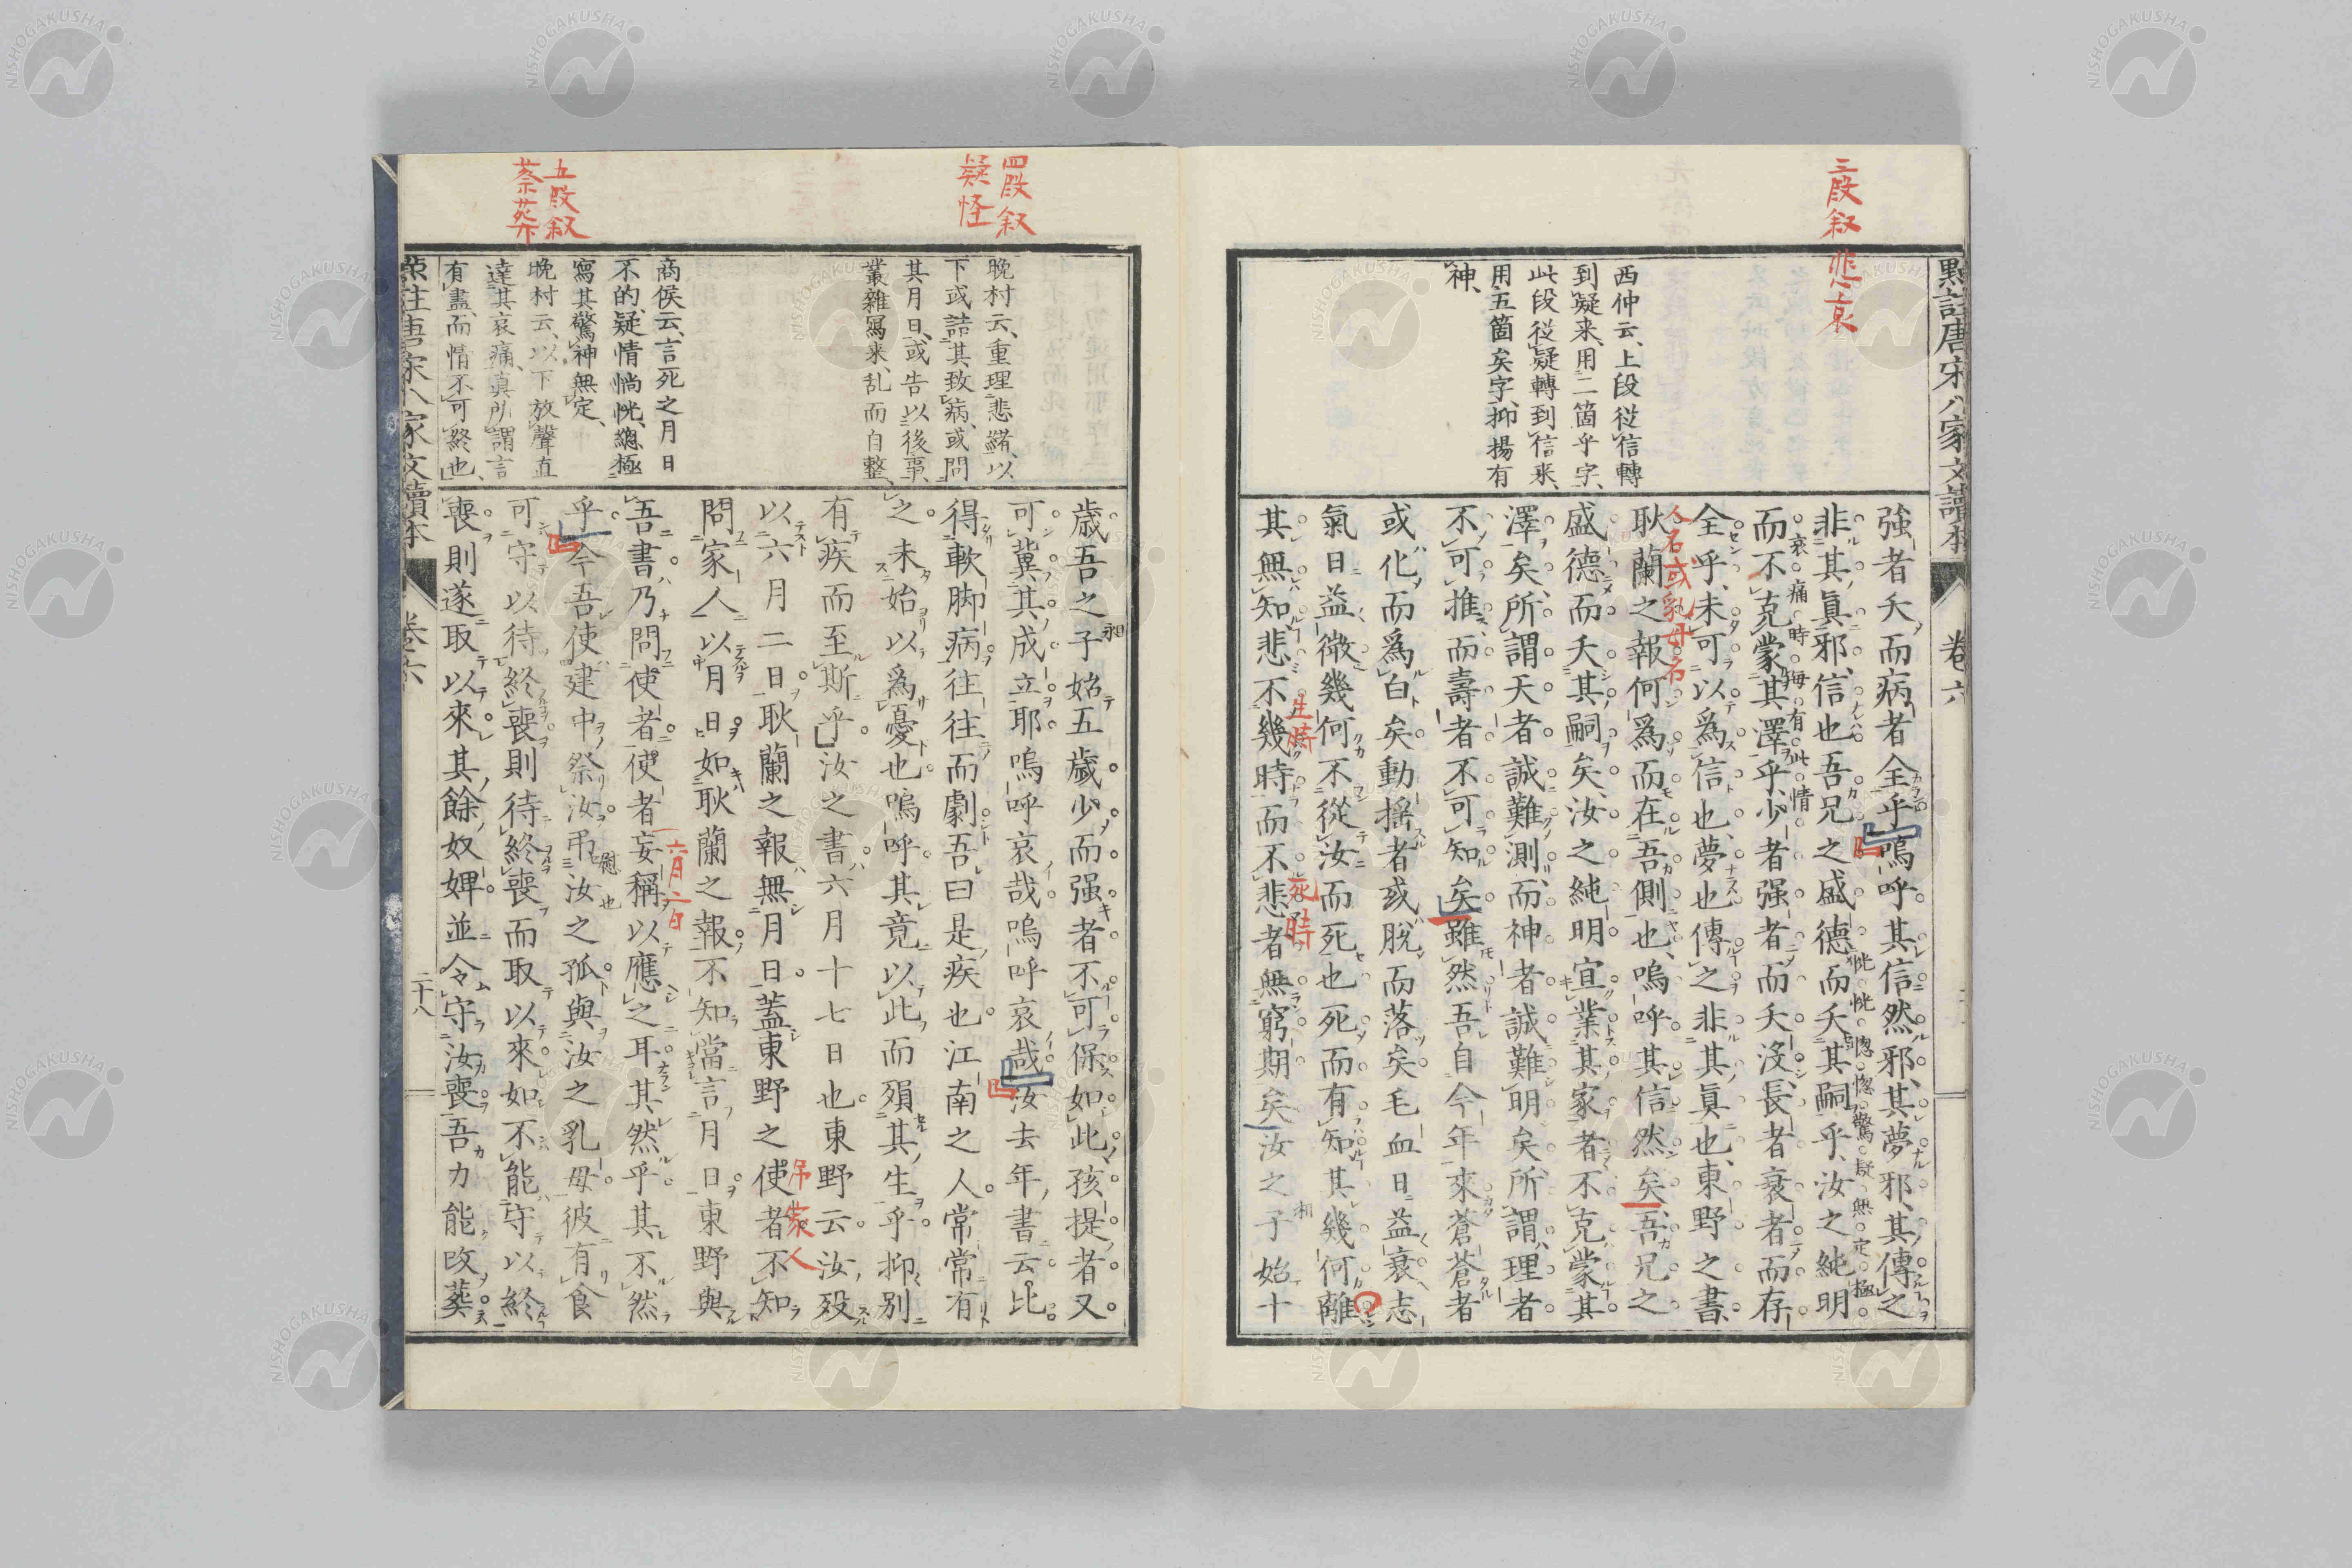 三段叙悲哀
點註唐宋八家文讀本 卷六
西仲云、上段從信轉
到疑来、用二箇乎字、
此段從疑轉到信来、
用五箇矣字、抑揚有
神、
強者夭而病者全乎嗚呼其信然邪其夢邪其傳之
非其眞邪信也吾兄之盛德而夭其嗣乎汝之純明
恍恍惚惚驚疑無定極
而不克蒙其澤乎少者强者而夭歿長者衰者而存
哀痛時每有此情
全乎未可以爲信也夢也傳之非其眞也東野之書
耿蘭之報何爲而在吾側也嗚呼其信然矣吾兄之
人名或乳母名
盛德而夭其嗣矣汝之純明宜業其家者不克蒙其
澤矣所謂天者誠難測而神者誠難明矣所謂理者
不可推而壽者不可知矣雖然吾自今年來蒼蒼者
或化而爲白矣動揺者或脫而落矣毛血日益衰志
氣日益微幾何不從汝而死也死而有知其幾何離
其無知悲不幾時而不悲者無窮期矣汝之子始十
生時
死時
湘
四段叙
疑怪
五段叙
祭葬
晚村云、重理悲緒、以
下或詰其致病、或問
其月日、或告以後事、
叢雜寫来、乱而自整
商侯云、言死之月日
不的、疑情惝恍、總極
寫其驚神無定、
晚村云、以下放聲直
達其哀痛、眞所謂言
有盡、而情不可終也、
歲吾之子始五歲少而强者不可保如此孩提者又
昶
可冀其成立耶嗚呼哀哉嗚呼哀哉汝去年書云比
得軟脚病往往而劇吾曰是疾也江南之人常常有
之未始以爲憂也嗚呼其竟以此而殞其生乎抑別
有疾而至斯乎汝之書六月十七日也東野云汝歿
以六月二日耿蘭之報無月日蓋東野之使者不知
問家人以月日如耿蘭之報不知當言月日東野與
吊家人
吾書乃問使者使者妄稱以應之耳其然乎其不然
六月二日
乎今吾使建中祭汝弔汝之孤與汝之乳母彼有食
慰也
可守以待終喪則待終喪而取以來如不能守以終
喪則遂取以來其餘奴婢並令守汝喪吾力能改葬
點註唐宋八家文讀本 卷六 二十八